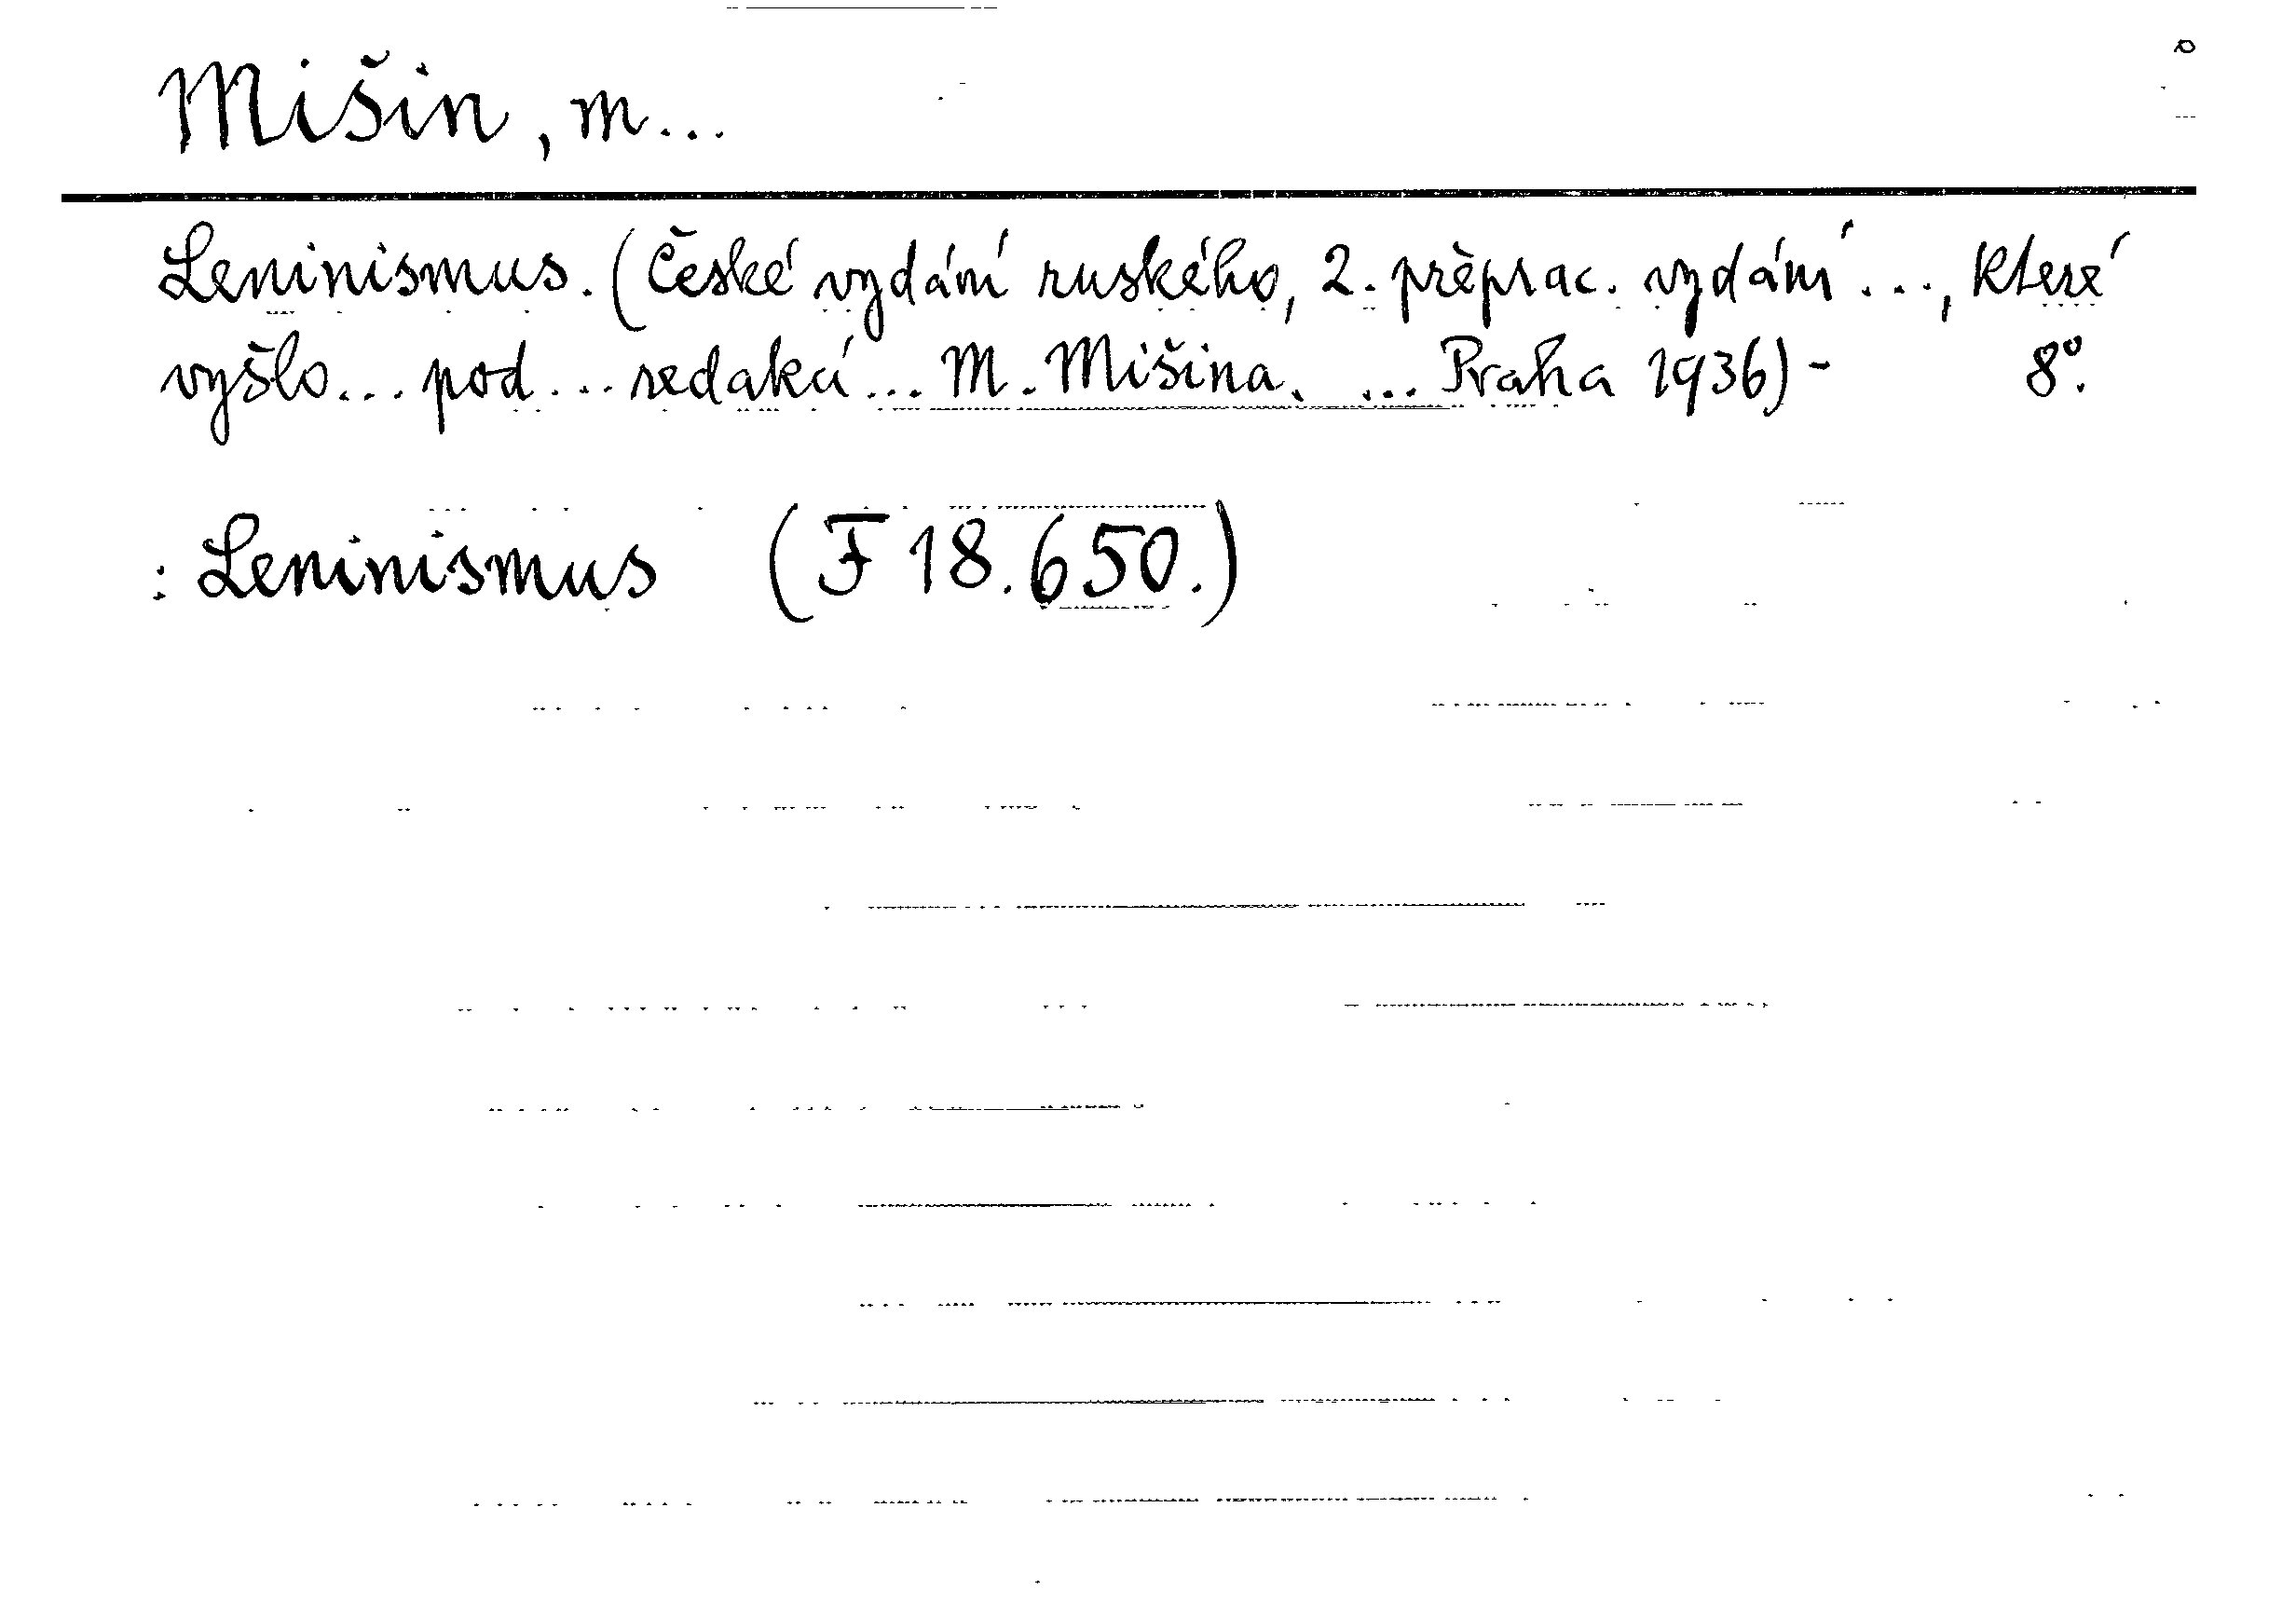 Mišin, M...
Leninismus. (České vydání ruského, 2. přeprac. vydání ..., které
vyšlo... pod... redakcí... M. Mišina. ... Praha 1936) - 8°.
: Leninismus (F 18.650.)